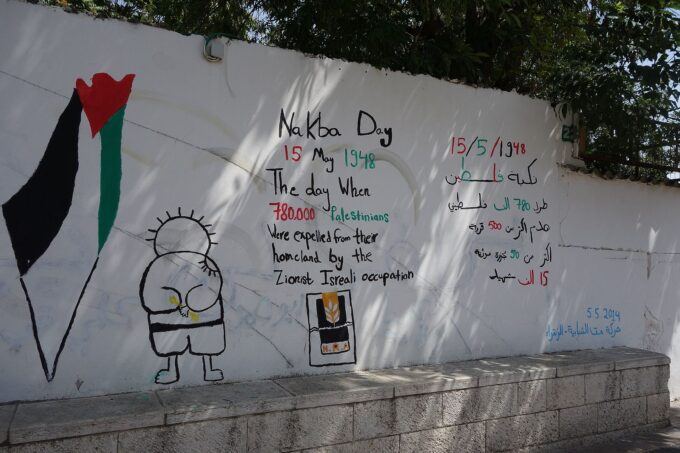 Nakba Day
15 May 1948
The day When
780.000 Palestinians
Were expelled from their
homeland by the
Zionist Isreali occupation
15/5/1948
نكبة فلسطين
طرد 780 الف فلسطيني
هدم اكثر من 500 قرية
اكثر من 50
15 الف شهيد
5 5 2014
حركة